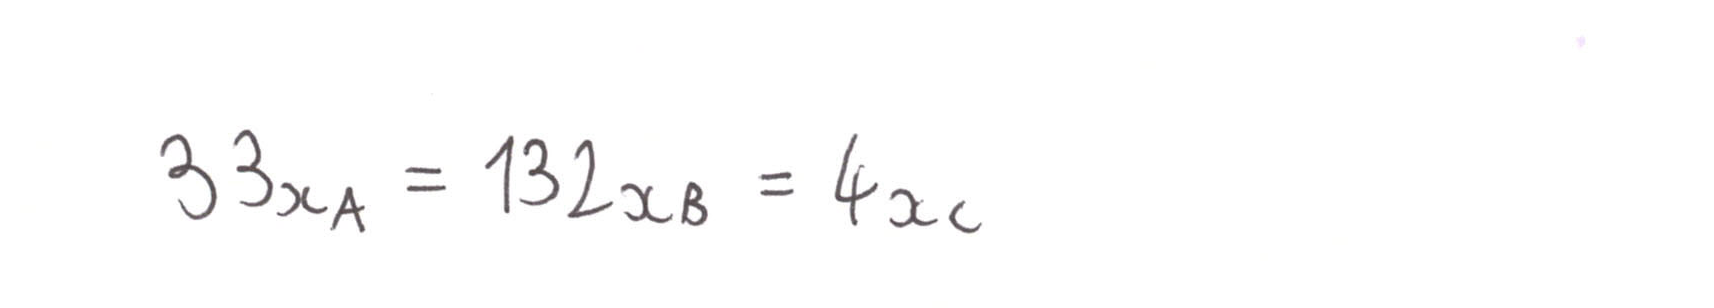 33xA = 132xB = 4xC